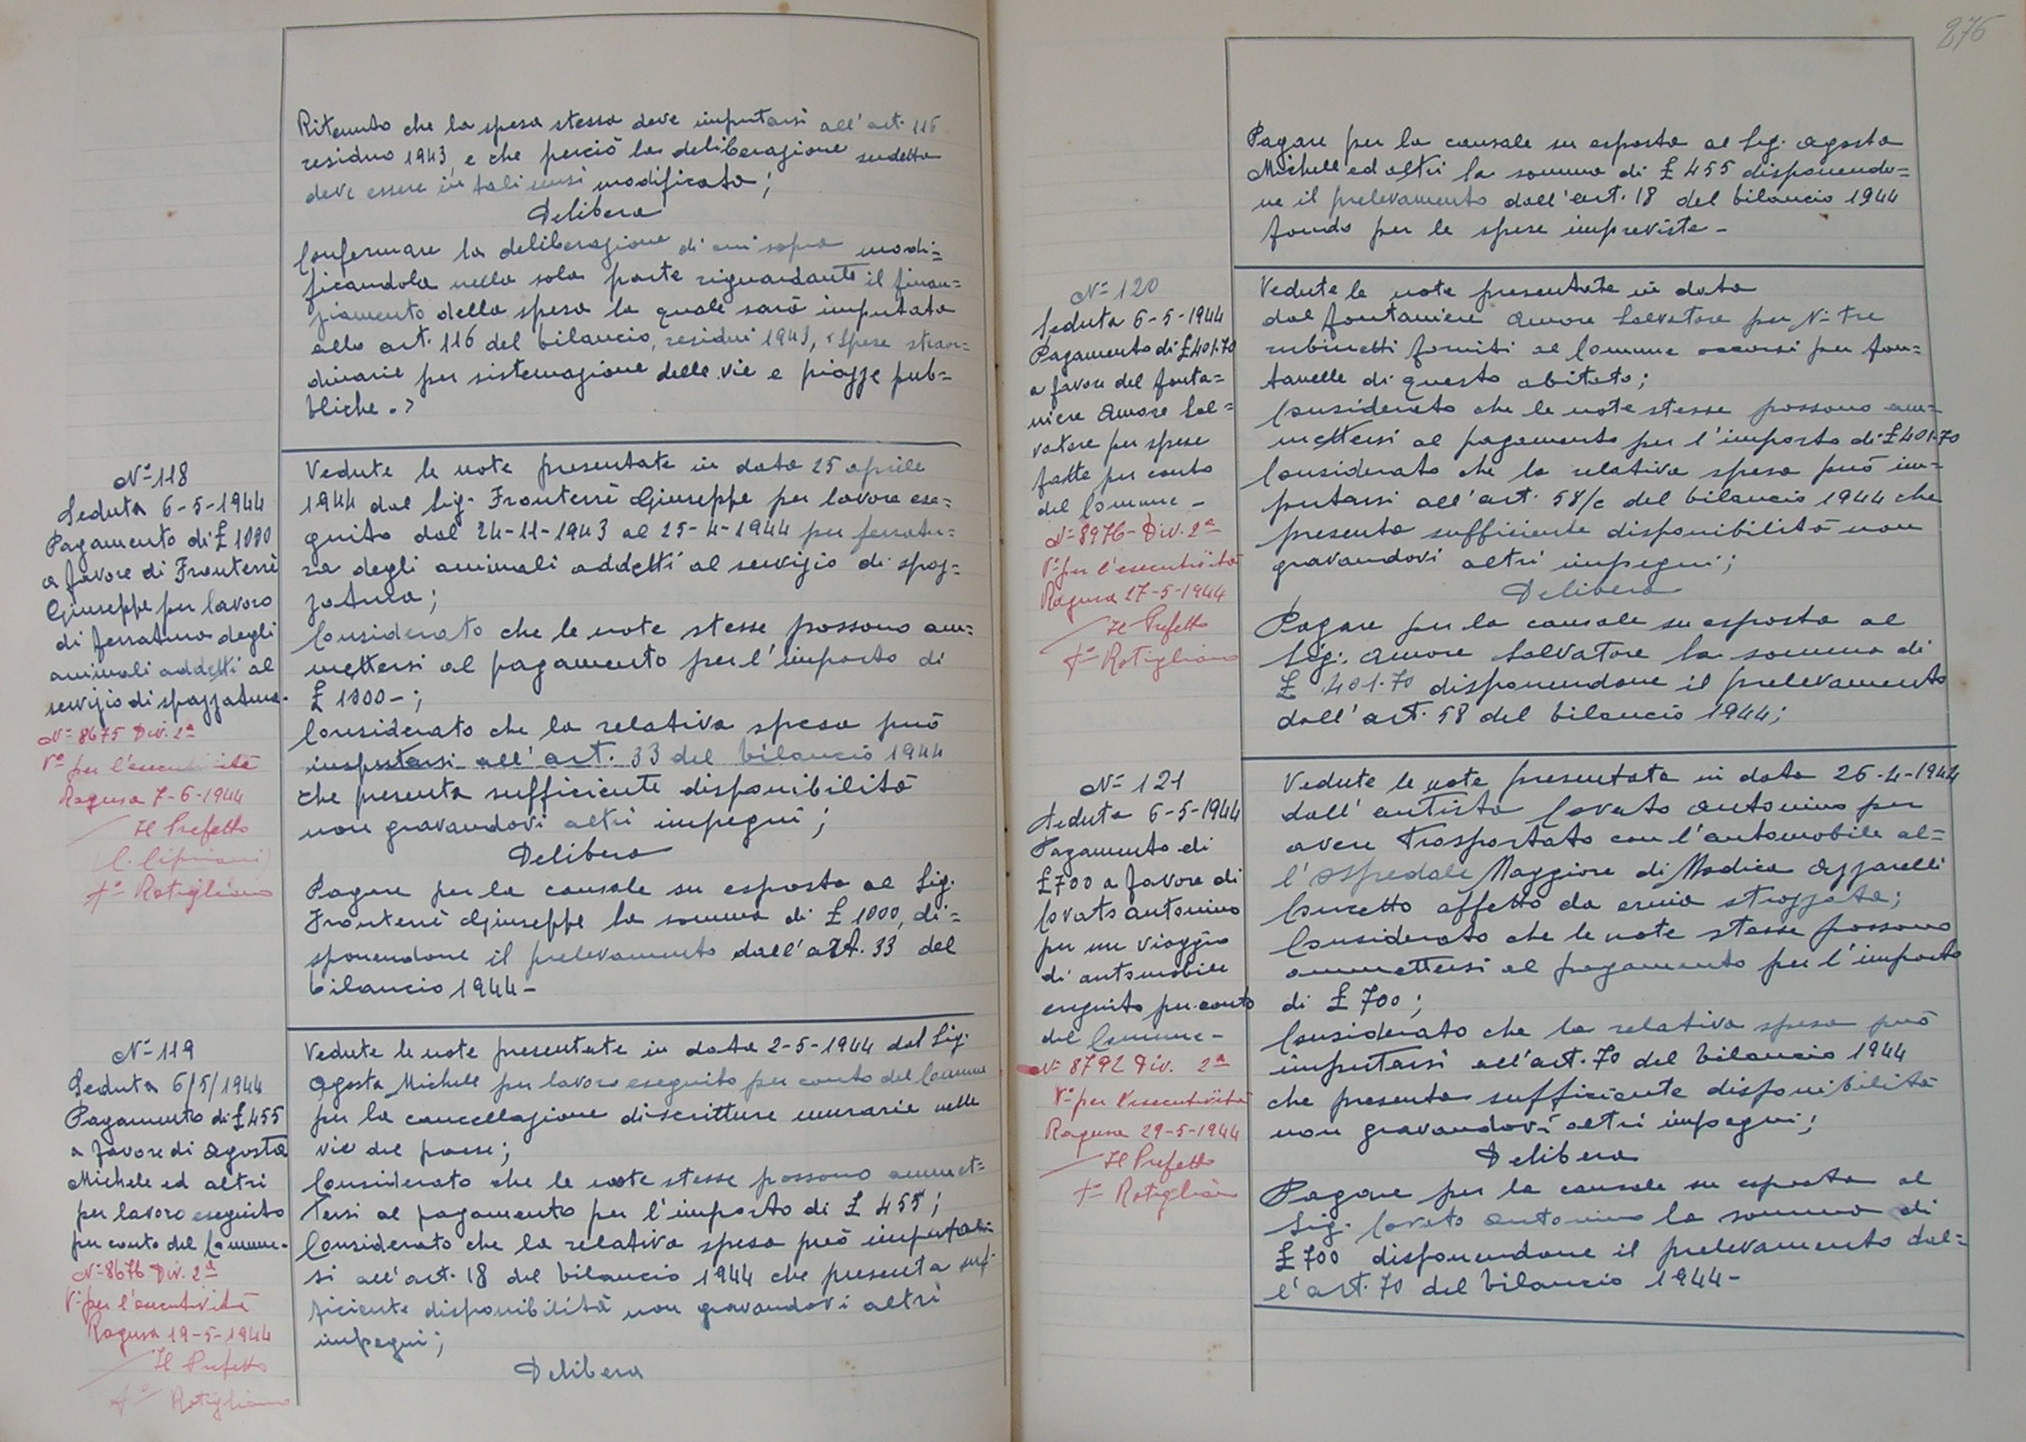 Ritenuto che la spesa stessa deve imputarsi all'art. 116
residuo 1943, e che perciò la deliberazione sudetta
deve essere in tali sensi modificata;
Delibera
Confermare la deliberazione di cui sopra modi=
ficandola nella sola parte riguardante il finan=
ziamento della spesa la quale sarà imputata
allo art. 116 del bilancio, residui 1943, "Spese straor=
dinarie per sistemazione delle vie e piazze pub=
bliche."
N° 118
Seduta 6-5-1944
Pagamento di £ 1000
a favore di Fronterrè
Giuseppe per lavoro
di ferratura degli
animali addetti al
servizio di spazzatura.
N° 8675 Div. 2ª
V° per l'esecutività
Ragusa 7-6-1944
Il Prefetto
(C. Cipriani)
f° Rotigliano
Vedute le note presentate in data 25 aprile
1944 dal Sig. Fronterrè Giuseppe per lavoro ese=
guito dal 24-11-1943 al 25-4-1944 per ferratu=
ra degli animali addetti al servizio di spaz=
zatura;
Considerato che le note stesse possono am=
mettersi al pagamento per l'importo di
£ 1000-;
Considerato che la relativa spesa può
imputarsi all'art. 33 del bilancio 1944
che presenta sufficiente disponibilità
non gravandovi altri impegni;
Delibera
Pagare per la causale su esposta al Sig.
Fronterrè Giuseppe la somma di £ 1000, di=
sponendone il prelevamento dall'art. 33 del
bilancio 1944-
N° 119
Seduta 6/5/1944
Pagamento di £ 455
a favore di Agosta
Michele ed altri
per lavoro eseguito
per conto del Comune.
N° 8676 Div. 2ª
V° per l'esecutività
Ragusa 19-5-1944
Il Prefetto
f° Rotigliano
Vedute le note presentate in data 2-5-1944 dal Sig.
Agosta Michele per lavoro eseguito per conto del Comune
per la cancellazione di scritture murarie nelle
vie del paese;
Considerato che le note stesse possono ammet=
tersi al pagamento per l'importo di £ 455;
Considerato che la relativa spesa può imputar
si all'art. 18 del bilancio 1944 che presenta suf=
ficiente disponibilità non gravandovi altri
impegni;
Delibera
276
Pagare per la causale su esposta al Sig. Agosta
Michele ed altri la somma di £ 455 disponendo=
ne il prelevamento dall'art. 18 del bilancio 1944
fondo per le spese impreviste-
N° 120
Seduta 6-5-1944
Pagamento di £ 401.70
a favore del fonta=
niere Amore Sal=
vatore per spese
fatte per conto
del Comune-
N° 8976- Div. 2ª
V° per l'esecutività
Ragusa 27-5-1944
Il Prefetto
f° Rotigliano
Vedute le note presentate in data
dal fontaniere Amore Salvatore per N° tre
rubinetti forniti al Comune occorsi per fon=
tanelle di questo abitato;
Considerato che le note stesse possono am=
mettersi al pagamento per l'importo di £ 401.70
Considerato che la relativa spesa può im=
putarsi all'art. 58/c del bilancio 1944 che
presenta sufficiente disponibilità non
gravandovi altri impegni;
Delibera
Pagare per la causale su esposta al
Sig. Amore Salvatore la somma di
£ 401.70 disponendone il prelevamento
dall'art. 58 del bilancio 1944;
N° 121
Seduta 6-5-1944
Pagamento di
£ 700 a favore di
Lovato Antonino
per un viaggio
di automobile
eseguito per conto
del Comune-
N° 8792 Div. 2ª
V° per l'esecutività
Ragusa 29-5-1944
Il Prefetto
f° Rotigliano
Vedute le note presentata in data 26-4-1944
dall'autista Lovato Antonino per
avere trasportato con l'automobile al=
l'Ospedale Maggiore di Modica Azzarelli
Concetto affetto da ernia strozzata;
Considerato che le note stesse possono
ammettersi al pagamento per l'importo
di £ 700;
Considerato che la relativa spesa può
imputarsi all'art. 70 del bilancio 1944
che presenta sufficiente disponibilità
non gravandovi altri impegni;
Delibera
Pagare per la causale su esposta al
Sig. Lovato Antonino la somma di
£ 700 disponendone il prelevamento dal=
l'art. 70 del bilancio 1944-